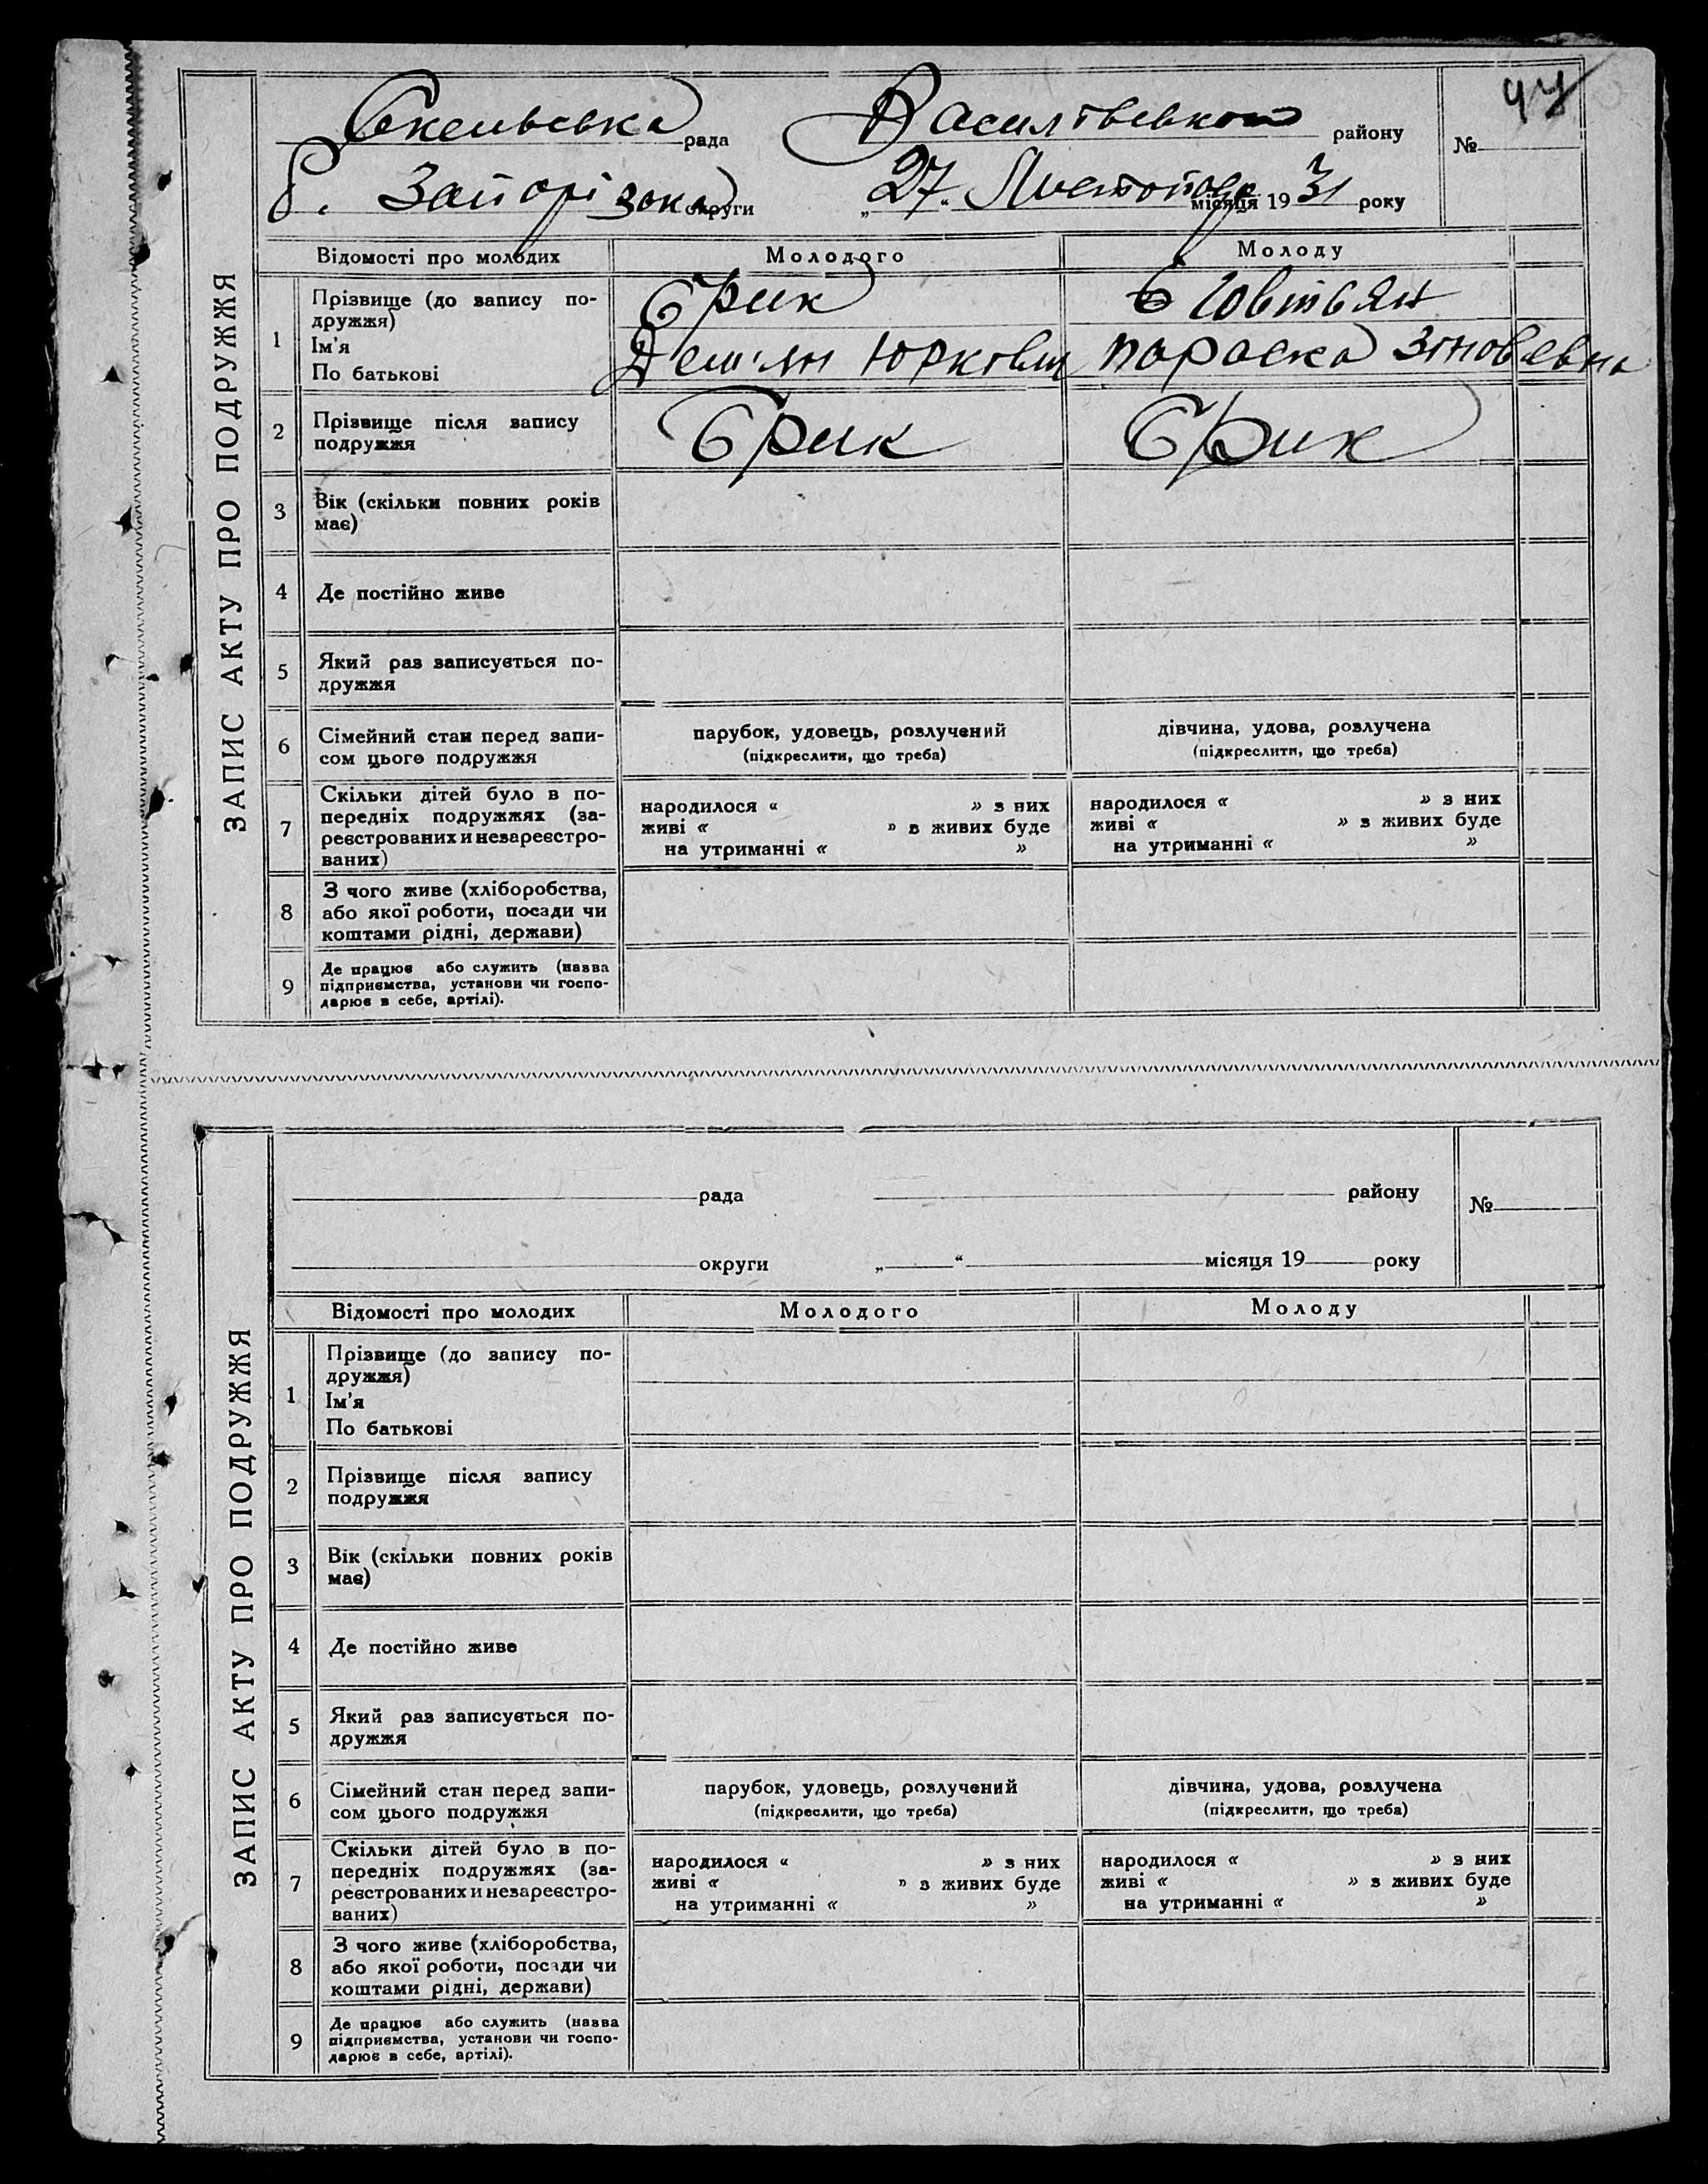 97
Скельвська рада Василівської району №
б. Запорізока округи „27" Листопада місяця 1931 року
ЗАПИС АКТУ ПРО ПОДРУЖЖЯ
Відомості про молодих Молодого Молоду
1 Прізвище (до запису по-
дружжя) Єрик Човтьян
Ім'я
По батькові Дем'ян Юркович Параска Зіновевна
2 Прізвище після запису
подружжя Єрик Єрик
3 Вік (скільки повних років
має)
4 Де постійно живе
5 Який раз записується по-
дружжя
6 Сімейний стан перед запи- парубок, удовець, розлучений дівчина, удова, розлучена
сом цього подружжя (підкреслити, що треба) (підкреслити, що треба)
7 Скільки дітей було в по-
передніх подружжях (за- народилося « » з них народилося « » з них
реєстрованих и незареєстро- живі « » з живих буде живі « » з живих буде
ваних) на утриманні « » на утриманні « »
8 З чого живе (хліборобства,
або якої роботи, посади чи
коштами рідні, держави)
9 Де працює або служить (назва
підприємства, установи чи госпо-
дарює в себе, артілі).
рада району №
округи „ " місяця 19 року
ЗАПИС АКТУ ПРО ПОДРУЖЖЯ
Відомості про молодих Молодого Молоду
1 Прізвище (до запису по-
дружжя)
Ім'я
По батькові
2 Прізвище після запису
подружжя
3 Вік (скільки повних років
має)
4 Де постійно живе
5 Який раз записується по-
дружжя
6 Сімейний стан перед запи- парубок, удовець, розлучений дівчина, удова, розлучена
сом цього подружжя (підкреслити, що треба) (підкреслити, що треба)
7 Скільки дітей було в по-
передніх подружжях (за- народилося « » з них народилося « » з них
реєстрованих и незареєстро- живі « » з живих буде живі « » з живих буде
ваних) на утриманні « » на утриманні « »
8 З чого живе (хліборобства,
або якої роботи, посади чи
коштами рідні, держави)
9 Де працює або служить (назва
підприємства, установи чи госпо-
дарює в себе, артілі).